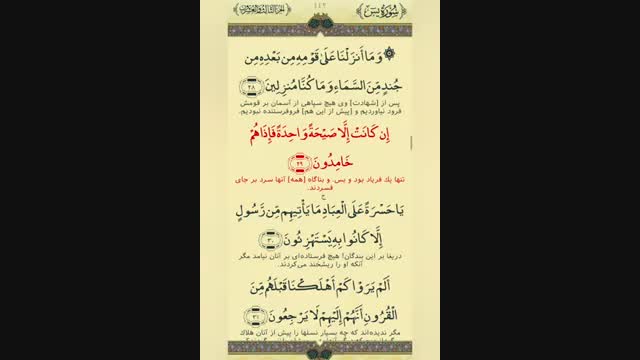 الجزء الثالث والعشرون
٤٤٢
سُورَةُ يس
وَمَا أَنزَلْنَا عَلَىٰ قَوْمِهِ مِن بَعْدِهِ مِن
جُندٍ مِّنَ السَّمَاءِ وَمَا كُنَّا مُنزِلِينَ ﴿٢٨﴾
پس از [شهادت] وی هیچ سپاهی از آسمان بر قومش
فرود نیاوردیم و [پیش از این هم] فروفرستنده نبودیم.
إِن كَانَتْ إِلَّا صَيْحَةً وَاحِدَةً فَإِذَا هُمْ
خَامِدُونَ ﴿٢٩﴾
تنها یك فریاد بود و بس. و بناگاه [همه] آنها سرد بر جای
فسردند.
يَا حَسْرَةً عَلَى الْعِبَادِ ۚ مَا يَأْتِيهِم مِّن رَّسُولٍ
إِلَّا كَانُوا بِهِ يَسْتَهْزِئُونَ ﴿٣٠﴾
دریغا بر این بندگان! هیچ فرستاده‌ای بر آنان نیامد مگر
آنکه او را ریشخند می‌کردند.
أَلَمْ يَرَوْا كَمْ أَهْلَكْنَا قَبْلَهُم مِّنَ
الْقُرُونِ أَنَّهُمْ إِلَيْهِمْ لَا يَرْجِعُونَ ﴿٣١﴾
مگر ندیده‌اند که چه بسیار نسلها را پیش از آنان هلاك